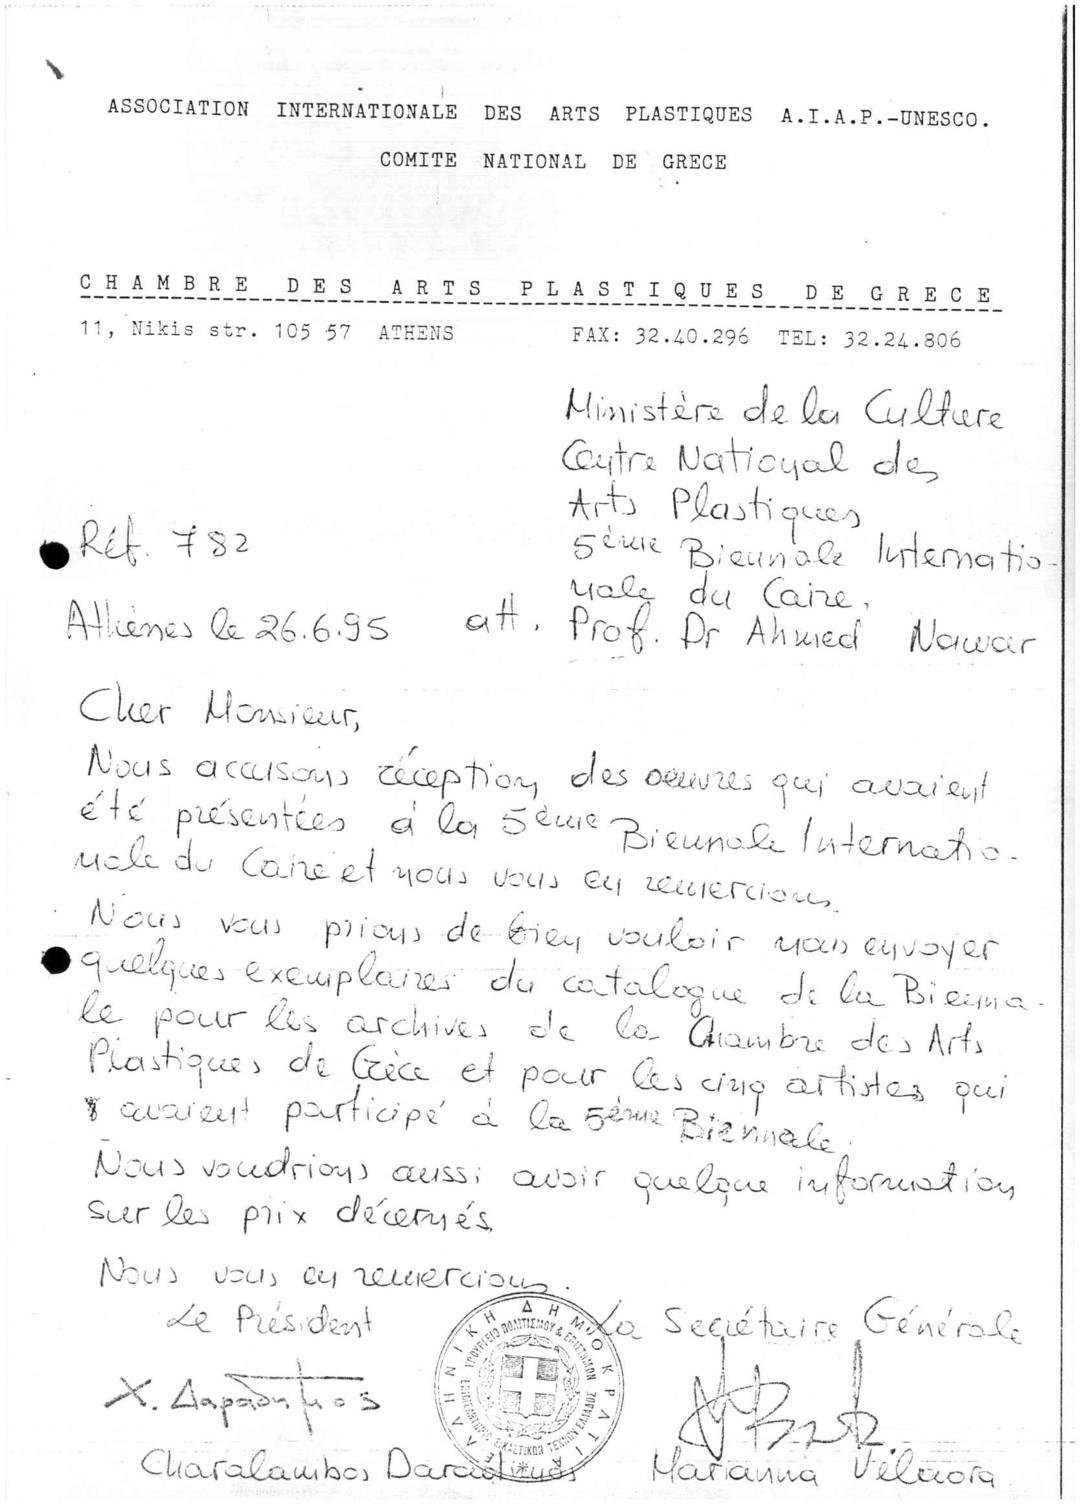 ASSOCIATION INTERNATIONALE DES ARTS PLASTIQUES A.I.A.P.-UNESCO.
COMITE NATIONAL DE GRECE
CHAMBRE DES ARTS PLASTIQUES DE GRECE
11, Nikis str. 105 57 ATHENS FAX: 32.40.296 TEL: 32.24.806
Ministère de la Culture
Centre National des
Arts Plastiques
Réf. 782
5ème Biennale Internatio-
nale du Caire,
Athènes le 26.6.95 att. Prof. Dr Ahmed Nawar
Cher Monsieur,
Nous accusons réception des oeuvres qui avaient
été présentées à la 5ème Biennale Internatio-
nale du Caire et nous vous en remercions.
Nous vous prions de bien vouloir nous envoyer
quelques exemplaires du catalogue de la Bienna-
le pour les archives de la Chambre des Arts
Plastiques de Grèce et pour les cinq artistes qui
avaient participé à la 5ème Biennale.
Nous voudrions aussi avoir quelque information
sur les prix décernés.
Nous vous en remercions.
Le Président La Secrétaire Générale
ΕΛΛΗΝΙΚΗ ΔΗΜΟΚΡΑΤΙΑ
ΥΠΟΥΡΓΕΙΟ ΠΟΛΙΤΙΣΜΟΥ & ΕΠΙΣΤΗΜΩΝ
ΕΠΙΜΕΛΗΤΗΡΙΟ ΕΙΚΑΣΤΙΚΩΝ ΤΕΧΝΩΝ ΕΛΛΑΔΟΣ
Χ. Δαραδήμος
Charalambos Daradimos Marianna